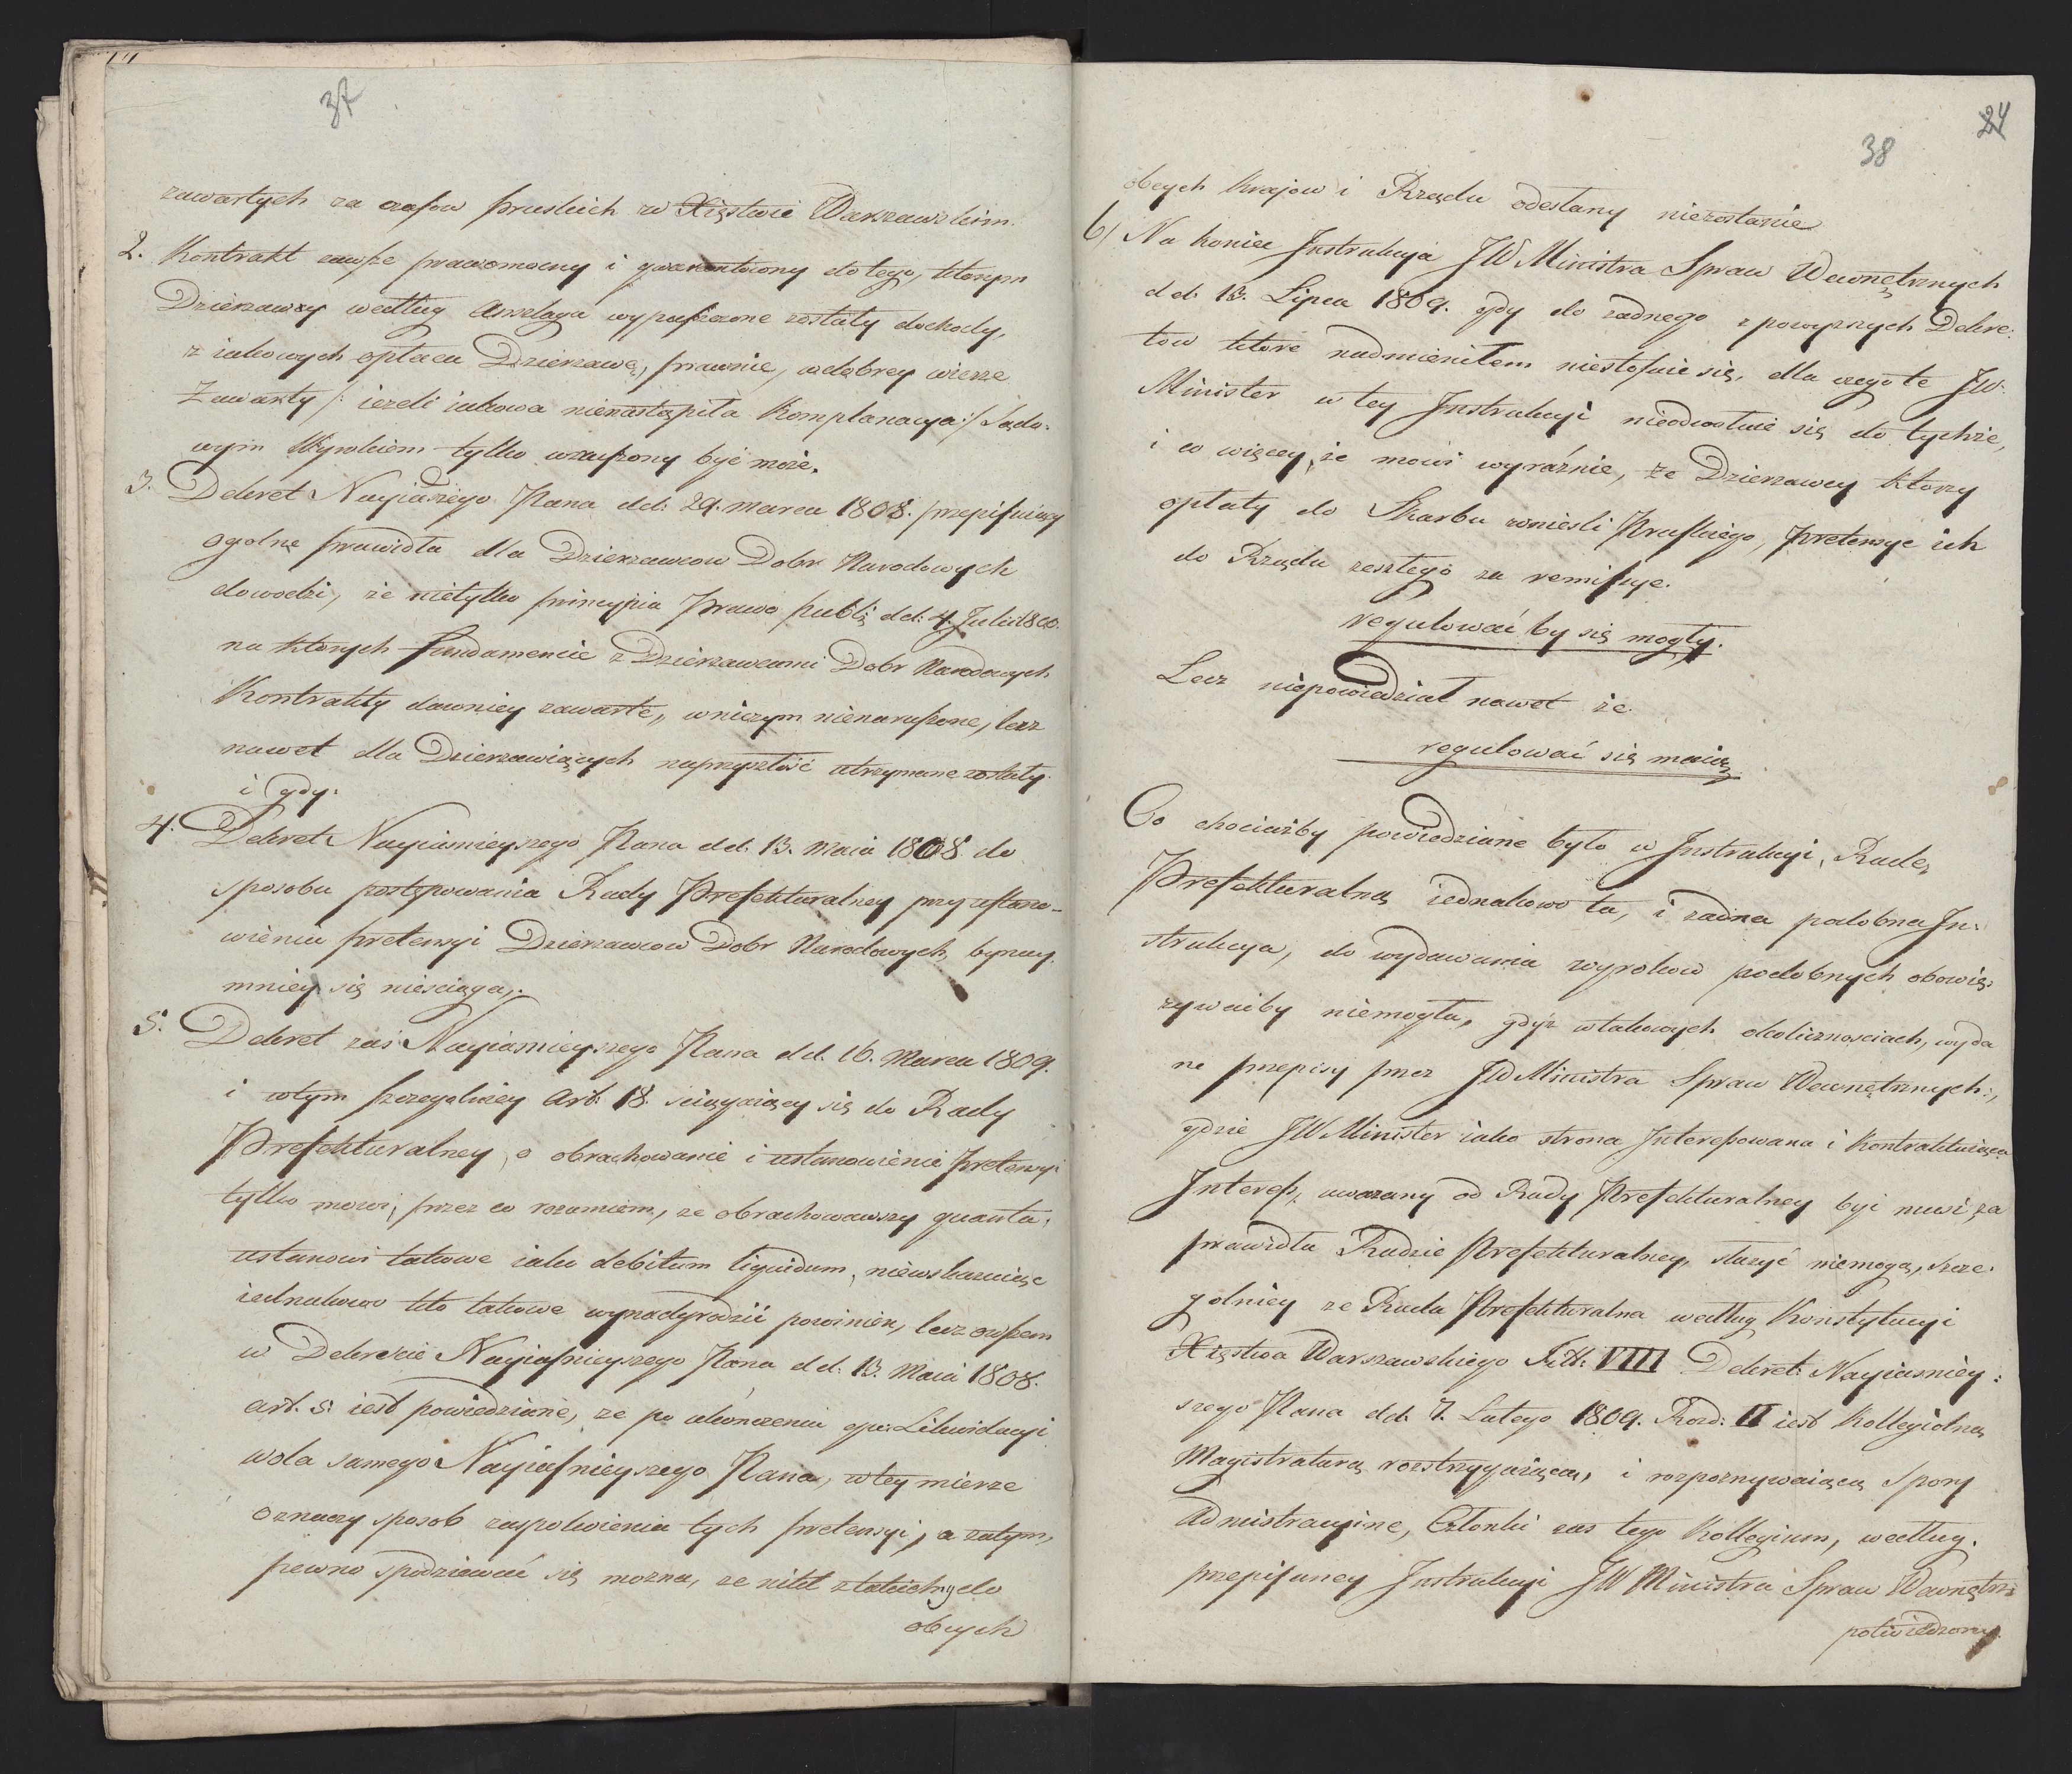 37
zawartych za czasow pruskich w Xięstwie Warszawskim.
2. Kontrakt zawsze prawomocny i gwarantowany do tego, ktorym
Dzierzawcy według Anszlagu wypuszczone zostały dochody,
z iakowych opłaca Dzierzawę, prawnie, w dobrey wierze
Zawarty /: iezeli iakowa nienastąpiła Komplanacya :/ Sądo-
wym Wyrokiem tylko wzruszony być może.
3. Dekret Nayiaszego Pana dd: 29. Marca 1808. przepisuiący
ogolne prawidła dla Dzierzawcow Dobr Narodowych
dowodzi, że nietylko principia Prawa publ: dd: 4. Julii 1800.
na ktorych fundamencie z Dzierzawcami Dobr Narodowych
Kontrakty dawniey zawarte, wniczym nienaruszone, lecz
nawet dla Dzierzawiących naprzyszłość utrzymane zostały.
i gdy:
4. Dekret Nayiasnieyszego Pana dd. 13. Maia 1808 do
sposobu postępowania Rady Prefekturalney przy ustano-
wieniu pretensyi Dzierzawcow Dobr Narodowych, bynay-
mniey się niesciąga,
5. Dekret zaś Nayiasnieyszego Pana dd. 16. Marca 1809.
i wtym szczegulniey Art: 18. sciągaiący się do Rady
Prefekturalney, o obrachowanie i ustanowienie pretensyi
tylko mowi, przez co rozumiem, ze obrachowawszy quanta,
ustanowi takowe iako debitum liquidum, niewskazuiąc
iednakowo kto takowe wynadgrodzić powinien, lecz owszem
w Dekrecie Nayiasnieyszego Pana dd: 13. Maia 1808.
art. 5: iest powiedziane, ze po ukonczeniu Likwidacyi
wola samego Nayiasnieyszego Pana, w tey mierze
oznaczy sposob zaspokoienia tych pretensyi, a zatym,
pewno spodziewać się mozna, ze nikt z takich do
obcych
24
38
obcych krajow i Rządu odesłany niezostanie
6) Na koniec Instrukcya JW Ministra Spraw Wewnętrznych
dd. 13. Lipca 1809. gdy do zadnego z powyzszych Dekre:
tow ktore nadmieniłem niestosuie się, dla czego te JW.
Minister w tey Instrukcyi nieodwołuie się do tychże,
i co więcey, że mowi wyraźnie, że Dzierzawcy ktorzy
opłaty do Skarbu wnieśli Pruskiego, pretensye ich
do Rządu zeszłego za remissye.
regulować by się mogły.
Lecz niepowiedział nawet że.
regulować się maią
Co chociażby powiedziane było w Instrukcyi, Radę
Prefekturalną iednakowo ta, i zadna podobna In:
strukcya, do wydawania wyrokow podobnych obowią:
zywałby niemogła, gdyz w takowych okolicznosciach, wyda
ne przepisy przez JW Ministra Spraw Wewnętrznych:,
gdzie JW Minister iako strona Interessowana i Kontraktuiąca
Interess, uwazany od Rady Prefekturalney być musi za
prawidła Radzie Prefekturalney, służyć niemogą, szcze:
golniey ze Rada Prefekturalna według Konstytucyi
Xięstwa Warszawskiego Titt: VIII Dekret: Nayiasniey:
szego Pana dd. 7. Lutego 1809. Rozd: II iest Kollegialną
Magistraturą rozstrzygaiącą, i rozpoznywaiącą Spory
Admistracyine, Członki zas tego Kollegium, według.
przepisaney Instrukcyi JW Ministra Spraw Wewnętrz:
potwiedzoney.